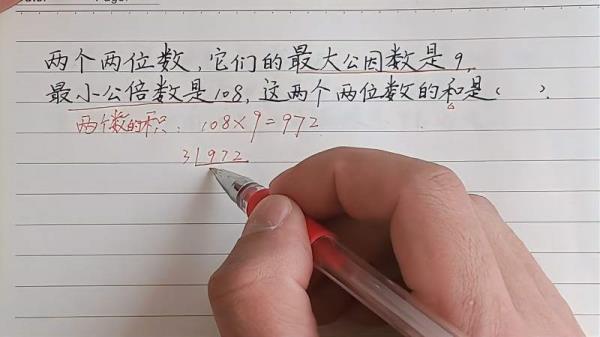 两个两位数,它们的最大公因数是9,
最小公倍数是108,这两个两位数的和是( ).
两个数的积: 108×9=972
3 972